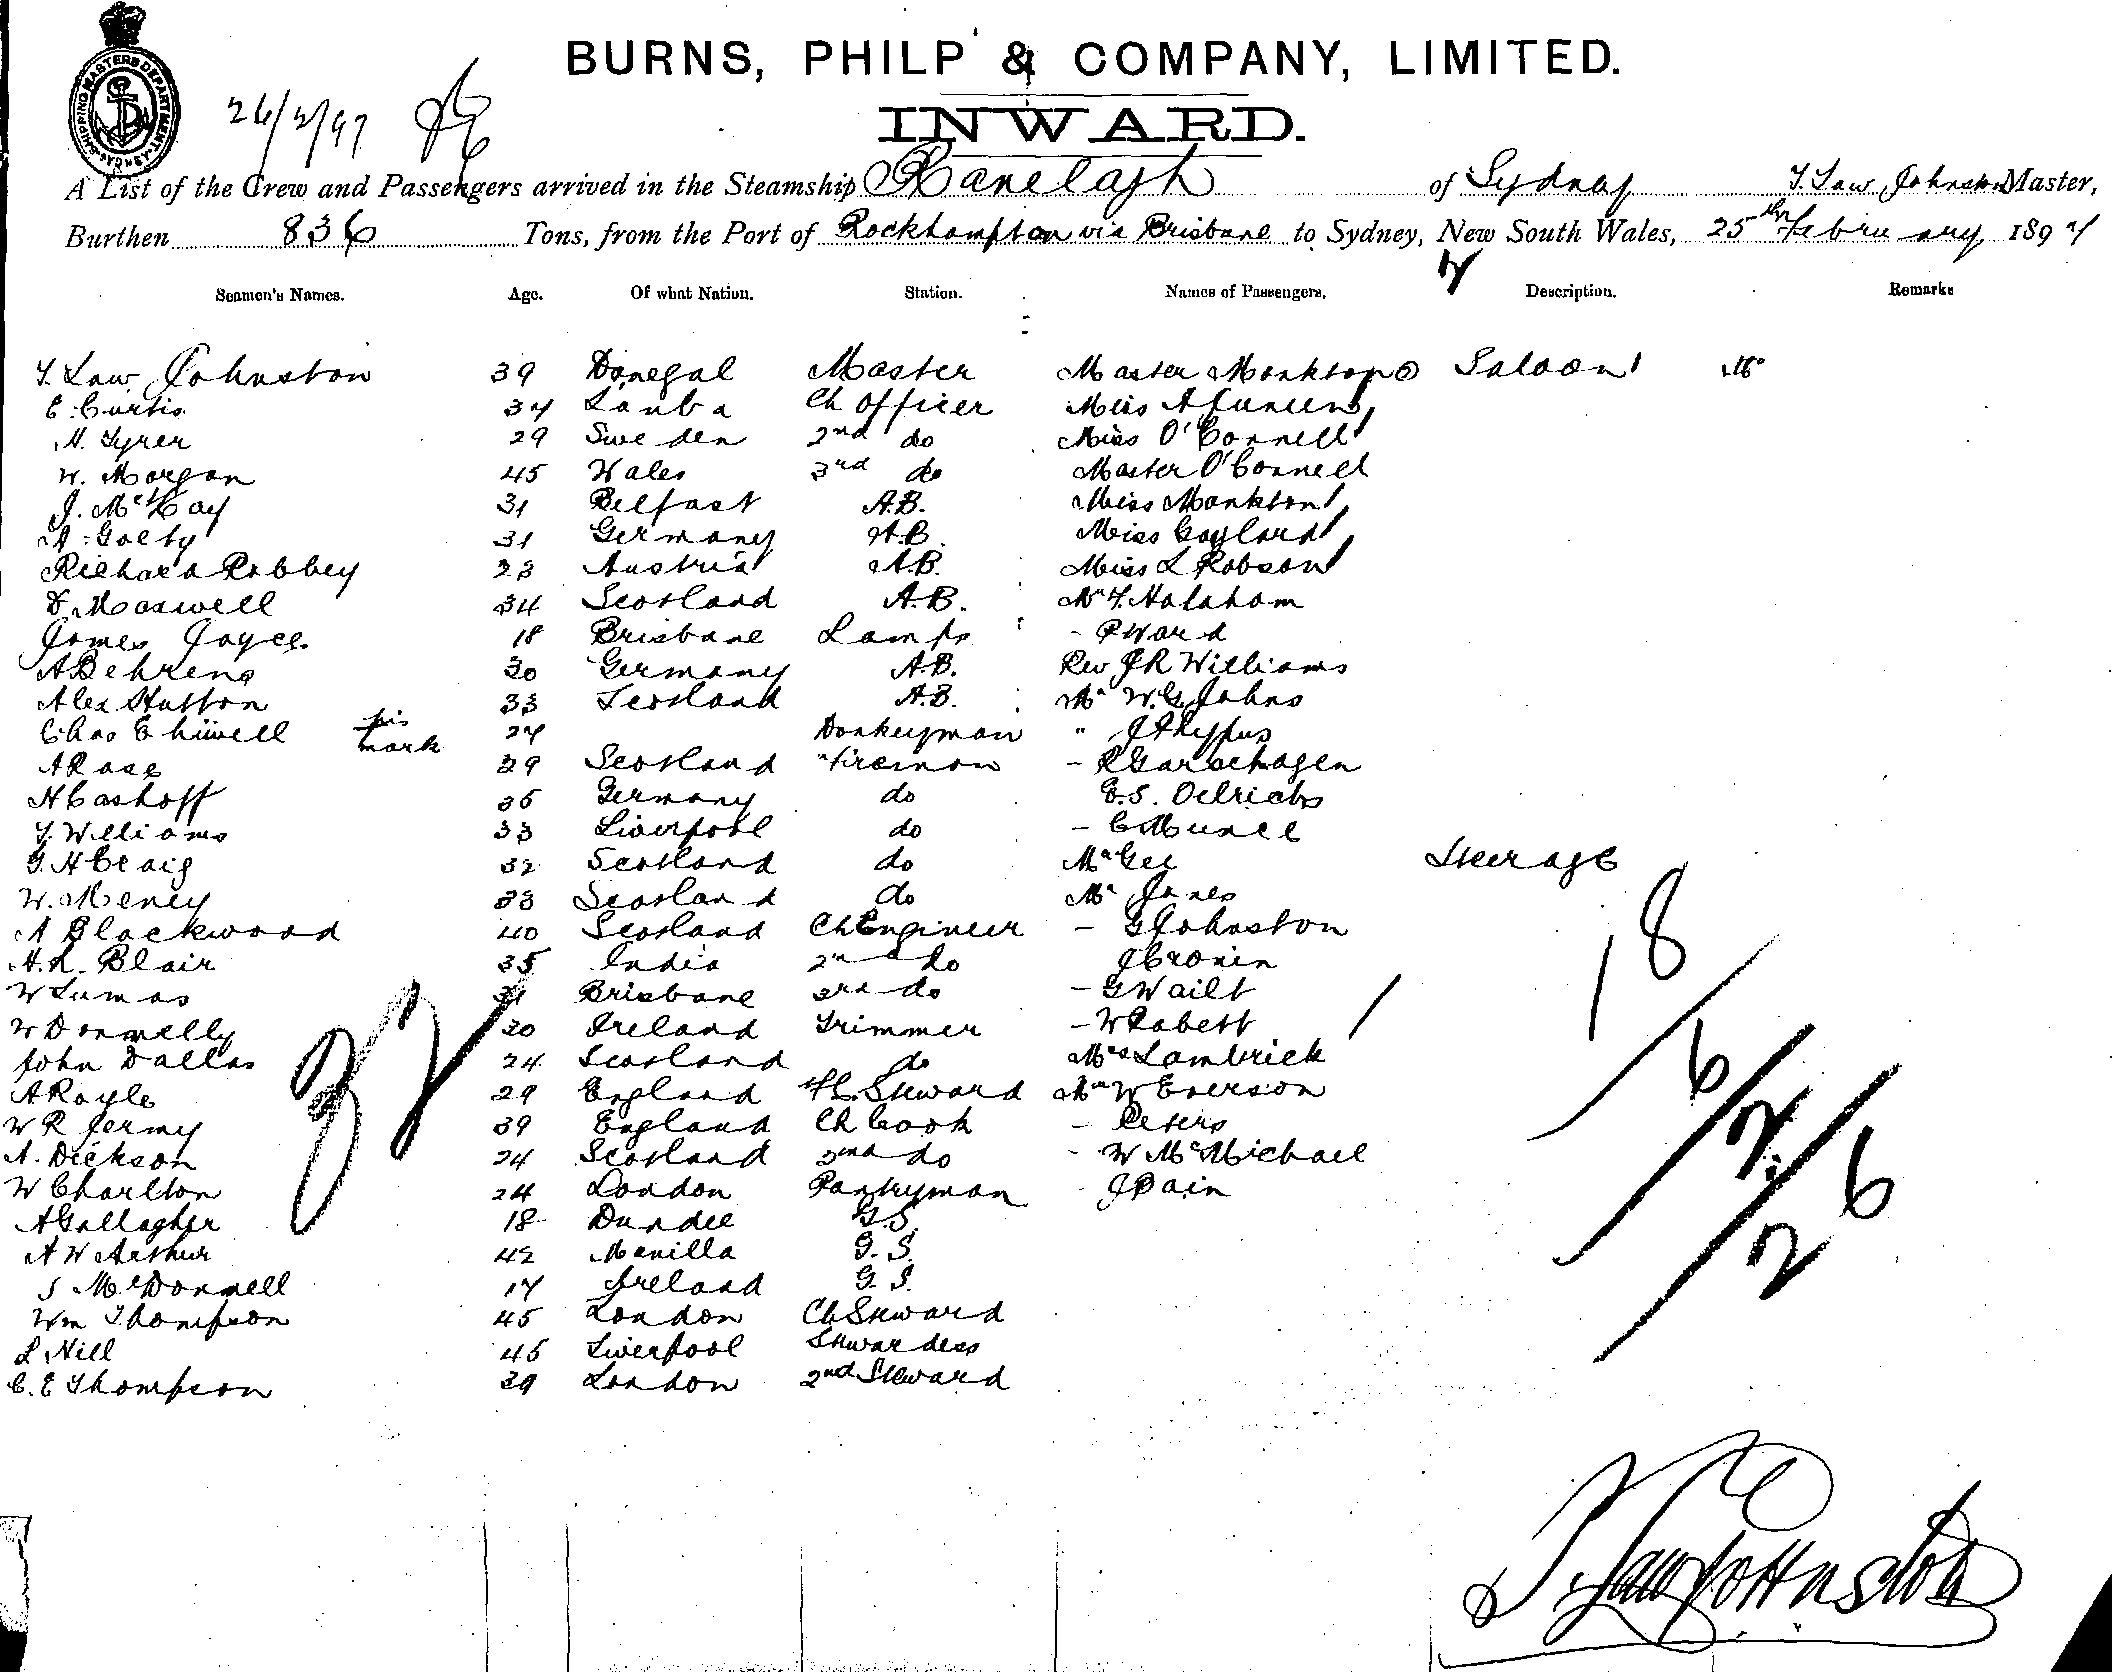 BURNS, PHILP & COMPANY, LIMITED.
SHIPPING MASTERS DEPARTMENT SYDNEY
26/2/97
INWARD.
A List of the Crew and Passengers arrived in the Steamship Ranelagh of Sydney T. Law Johnston Master,
Burthen 836 Tons, from the Port of Rockhampton via Brisbane to Sydney, New South Wales, 25th February 1897
Seamen's Names. Age. Of what Nation. Station. Names of Passengers. Description. Remarks
T. Law Johnston 39 Donegal Master Master Monkton Saloon
C. Curtis 34 Ch Officer Miss
N. Tyrer 29 Sweden 2nd do Miss O'Connell
W. Morgan 45 Wales 3rd do Master O'Connell
J. McKay 31 Belfast A.B. Miss Monkton
A. Golby 31 Germany A.B. Miss Gaylard
Richard Robbey 23 Austria A.B. Miss L Robson
D. Maxwell 34 Scotland A.B. Mr T. Halaham
James Joyce 18 Brisbane Lamps - P Ward
A Behrens 30 Germany A.B. Rev J R Williams
Alex Hutton 33 Scotland A.B. Mr W. G. Johns
Chas his mark 27 Donkeyman "
A Rose 29 Scotland Fireman -
H Cashoff 35 Germany do E. S. Oelrichs
T. Williams 33 Liverpool do -
G. H Craig 32 Scotland do Mr Gee Steerage
W. Meney 33 Scotland do Mr Jones
A Blackwood 40 Scotland Ch Engineer - G Johnston
A. L. Blair 35 India 2nd do J Cronin
W Lumas 31 Brisbane 3rd do - G Wailt
W Donnelly 30 Ireland Trimmer - W Rabett
John Dallas 24 Scotland do Mrs Lambrick
A Royle 29 England Steward Mr W Everson
W R Jermy 39 England Ch Cook - Peters
A. Dickson 24 Scotland 2nd do - W McMichael
W Charlton 24 London Pantryman - J Pain
A Gallagher 18 Dundee G.S.
A W Arthur 42 Manilla G. S.
S McDonnell 17 Ireland G. S.
Wm Thompson 45 London Ch Steward
L Hill 45 Liverpool Stewardess
C. E Thompson 39 London 2nd Steward
32
18
6
2
26
T. Law Johnston